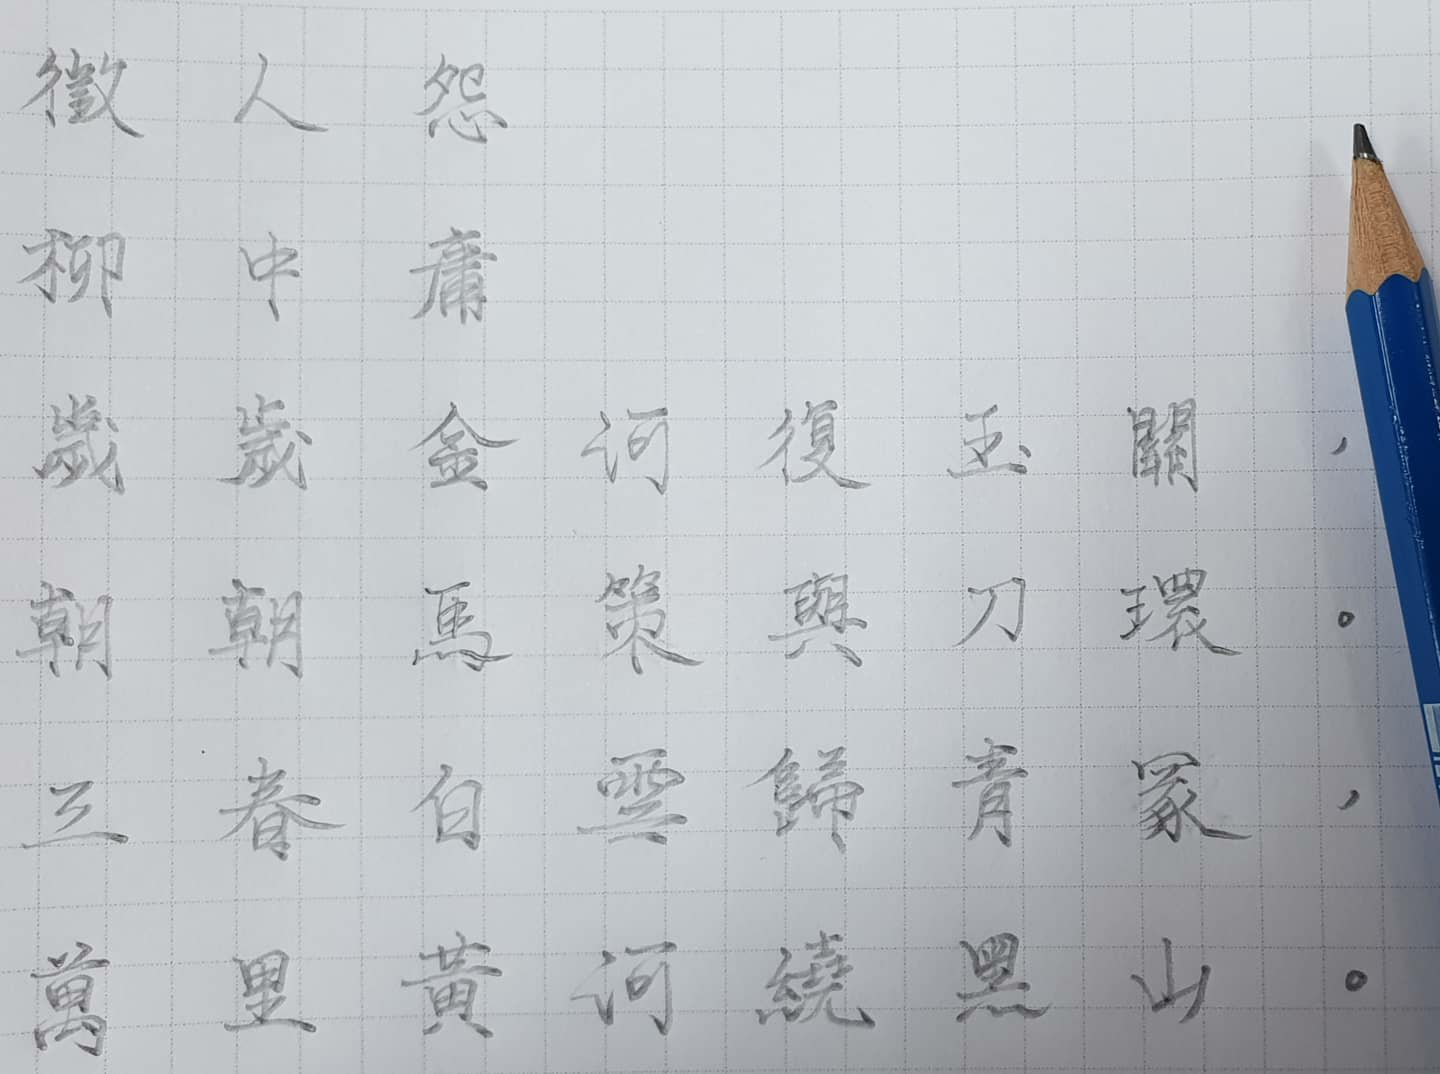 徵人怨
柳中庸
歲歲金河復玉關，
朝朝馬策與刀環。
三春白雲歸青冢，
萬里黃河繞黑山。